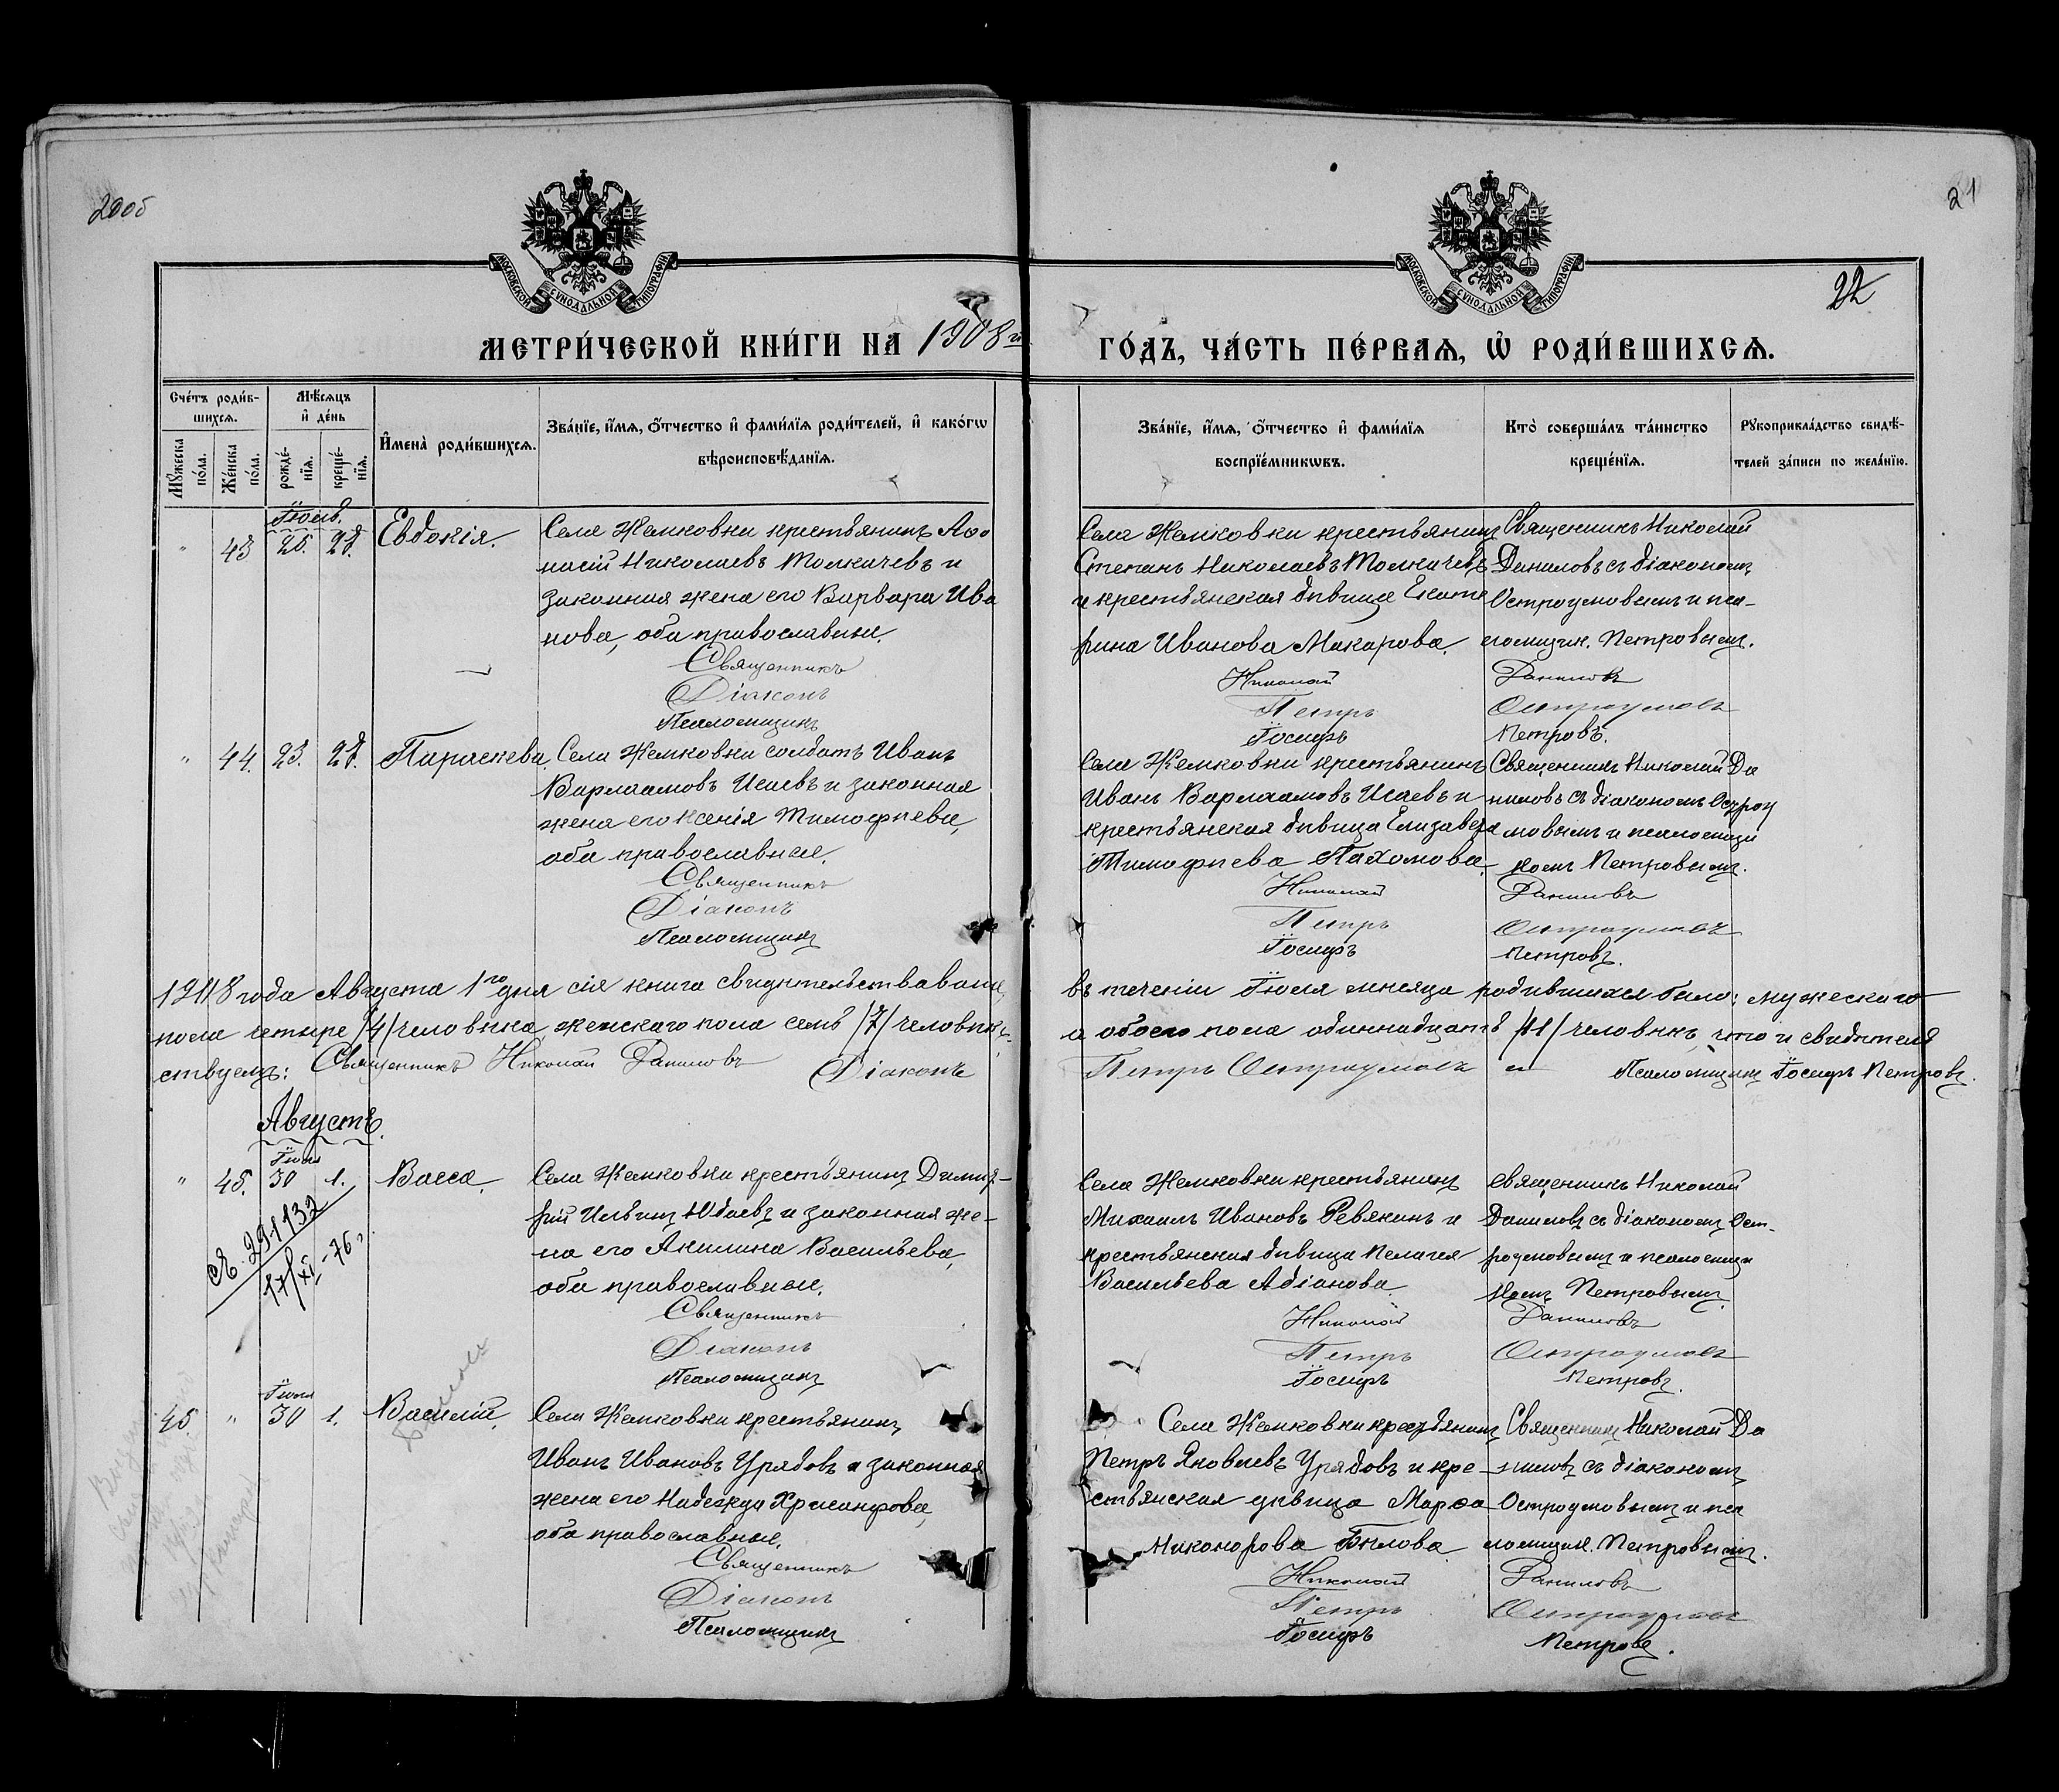 20об
21
22
МОСКОВСКОЙ СѴНОДАЛЬНОЙ ТИПОГРАФІИ
МОСКОВСКОЙ СѴНОДАЛЬНОЙ ТИПОГРАФІИ
МЕТРИ́ЧЕСКОЙ КНИ́ГИ НА 1908й
ГО́ДЪ, ЧА́СТЬ ПЕ́РВАѦ, Ѡ҆ РОДИ́ВШИХСѦ.
Сче́тъ роди́в-
шихсѧ.
Мѣ́сѧцъ
и҆ де́нь
И҆мена̀ роди́вшихсѧ.
Зва́нїе, и҆́мѧ, ѻ҆́тчество и҆ фами́лїѧ роди́телей, и҆ како́гѡ
вѣроисповѣ́данїѧ.
Мꙋ́жеска по́ла.
Же́нска по́ла.
рожде́-нїѧ.
креще́-нїѧ.
Зва́нїе, и҆́мѧ, ѻ҆́тчество и҆ фами́лїѧ
воспрїе́мникѡвъ.
Кто̀ соверша́лъ та́инство
креще́нїѧ.
Рꙋкоприкла́дство свидѣ́-
телей за́писи по жела́нїю.
Іюль.
" 43 25. 27. Евдокія.
Села Жемковки крестьянинъ Аѳо
насій Николаевъ Толкачевъ и
законная жена его Варвара Ива
нова, оба православные.
Священникъ
Діаконъ
Псаломщикъ
Села Жемковки крестьянинъ
Степанъ Николаевъ Толкачевъ
и крестьянская дѣвица Екате
рина Иванова Макарова.
Николай
Петръ
Іосифъ
Священникъ Николай
Даниловъ съ діакономъ
Остроумовымъ и пса-
ломщик. Петровымъ.
Даниловъ
Остроумовъ
Петровъ.
" 44. 23. 27. Параскева.
Села Жемковки солдатъ Иванъ
Варлаамовъ Исаевъ и законная
жена его Ксенія Тимофѣева,
оба православные.
Священникъ
Діаконъ
Псаломщикъ
Села Жемковки крестьянинъ
Иванъ Варлаамовъ Исаевъ и
крестьянская дѣвица Елизавета
Тимофѣева Пахомова.
Николай
Петръ
Іосифъ
Священникъ Николай Да
ниловъ съ діакономъ Остроу
мовымъ и псаломщи
комъ Петровымъ.
Даниловъ
Остроумовъ
Петровъ.
1908 года Августа 1го дня сія книга свидѣтельствована, въ теченіи Іюля мѣсяца родившихся было: мужескаго
пола четыре /4/ человѣка, женскаго пола семь /7/ человѣкъ, а обоего пола одиннадцать /11/ человѣкъ, что и свидѣтель
ствуемъ: Священникъ Николай Даниловъ Діаконъ Петръ Остроумовъ Псаломщикъ Іосифъ Петровъ.
Августъ.
Іюля
" 45. 30 1. Васса.
291132
17/XI-76
Села Жемковки крестьянинъ Димит-
рій Ильинъ Юдаевъ и законная же-
на его Акилина Васильева,
оба православные.
Священникъ
Діаконъ
Псаломщикъ
Села Жемковки крестьянинъ
Михаилъ Ивановъ Ревякинъ и
крестьянская дѣвица Пелагея
Васильева Абіанова
Николай
Петръ
Іосифъ
Священникъ Николай
Даниловъ съ діакономъ Ост-
роумовымъ и псаломщи
комъ Петровымъ.
Даниловъ
Остроумовъ
Петровъ.
Іюля
45. " 30 1. Василій.
Села Жемковки крестьянинъ
Иванъ Ивановъ Урядовъ и законная
жена его Надежда Хрисанфова,
оба православные.
Священникъ
Діаконъ
Псаломщикъ
Села Жемковки крестьянинъ
Петръ Яковлевъ Урядовъ и кре-
стьянская дѣвица Марѳа
Никонорова Бѣлова
Николай
Петръ
Іосифъ
Священникъ Николай Да
ниловъ съ діакономъ
Остроумовымъ и пса
ломщик. Петровымъ.
Даниловъ
Остроумовъ
Петровъ.